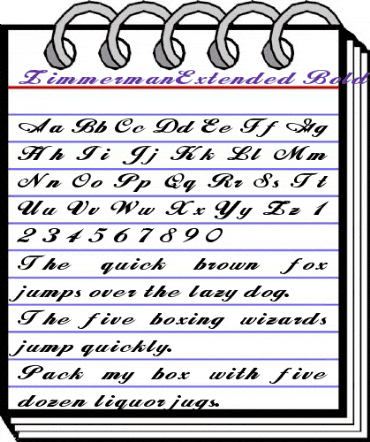 ZimmermanExtended Bold
Aa Bb Cc Dd Ee Ff Gg
Hh Ii Jj Kk Ll Mm
Nn Oo Pp Qq Rr Ss Tt
Uu Vv Ww Xx Yy Zz 1
2 3 4 5 6 7 8 9 0
The quick brown fox
jumps over the lazy dog.
The five boxing wizards
jump quickly.
Pack my box with five
dozen liquor jugs.